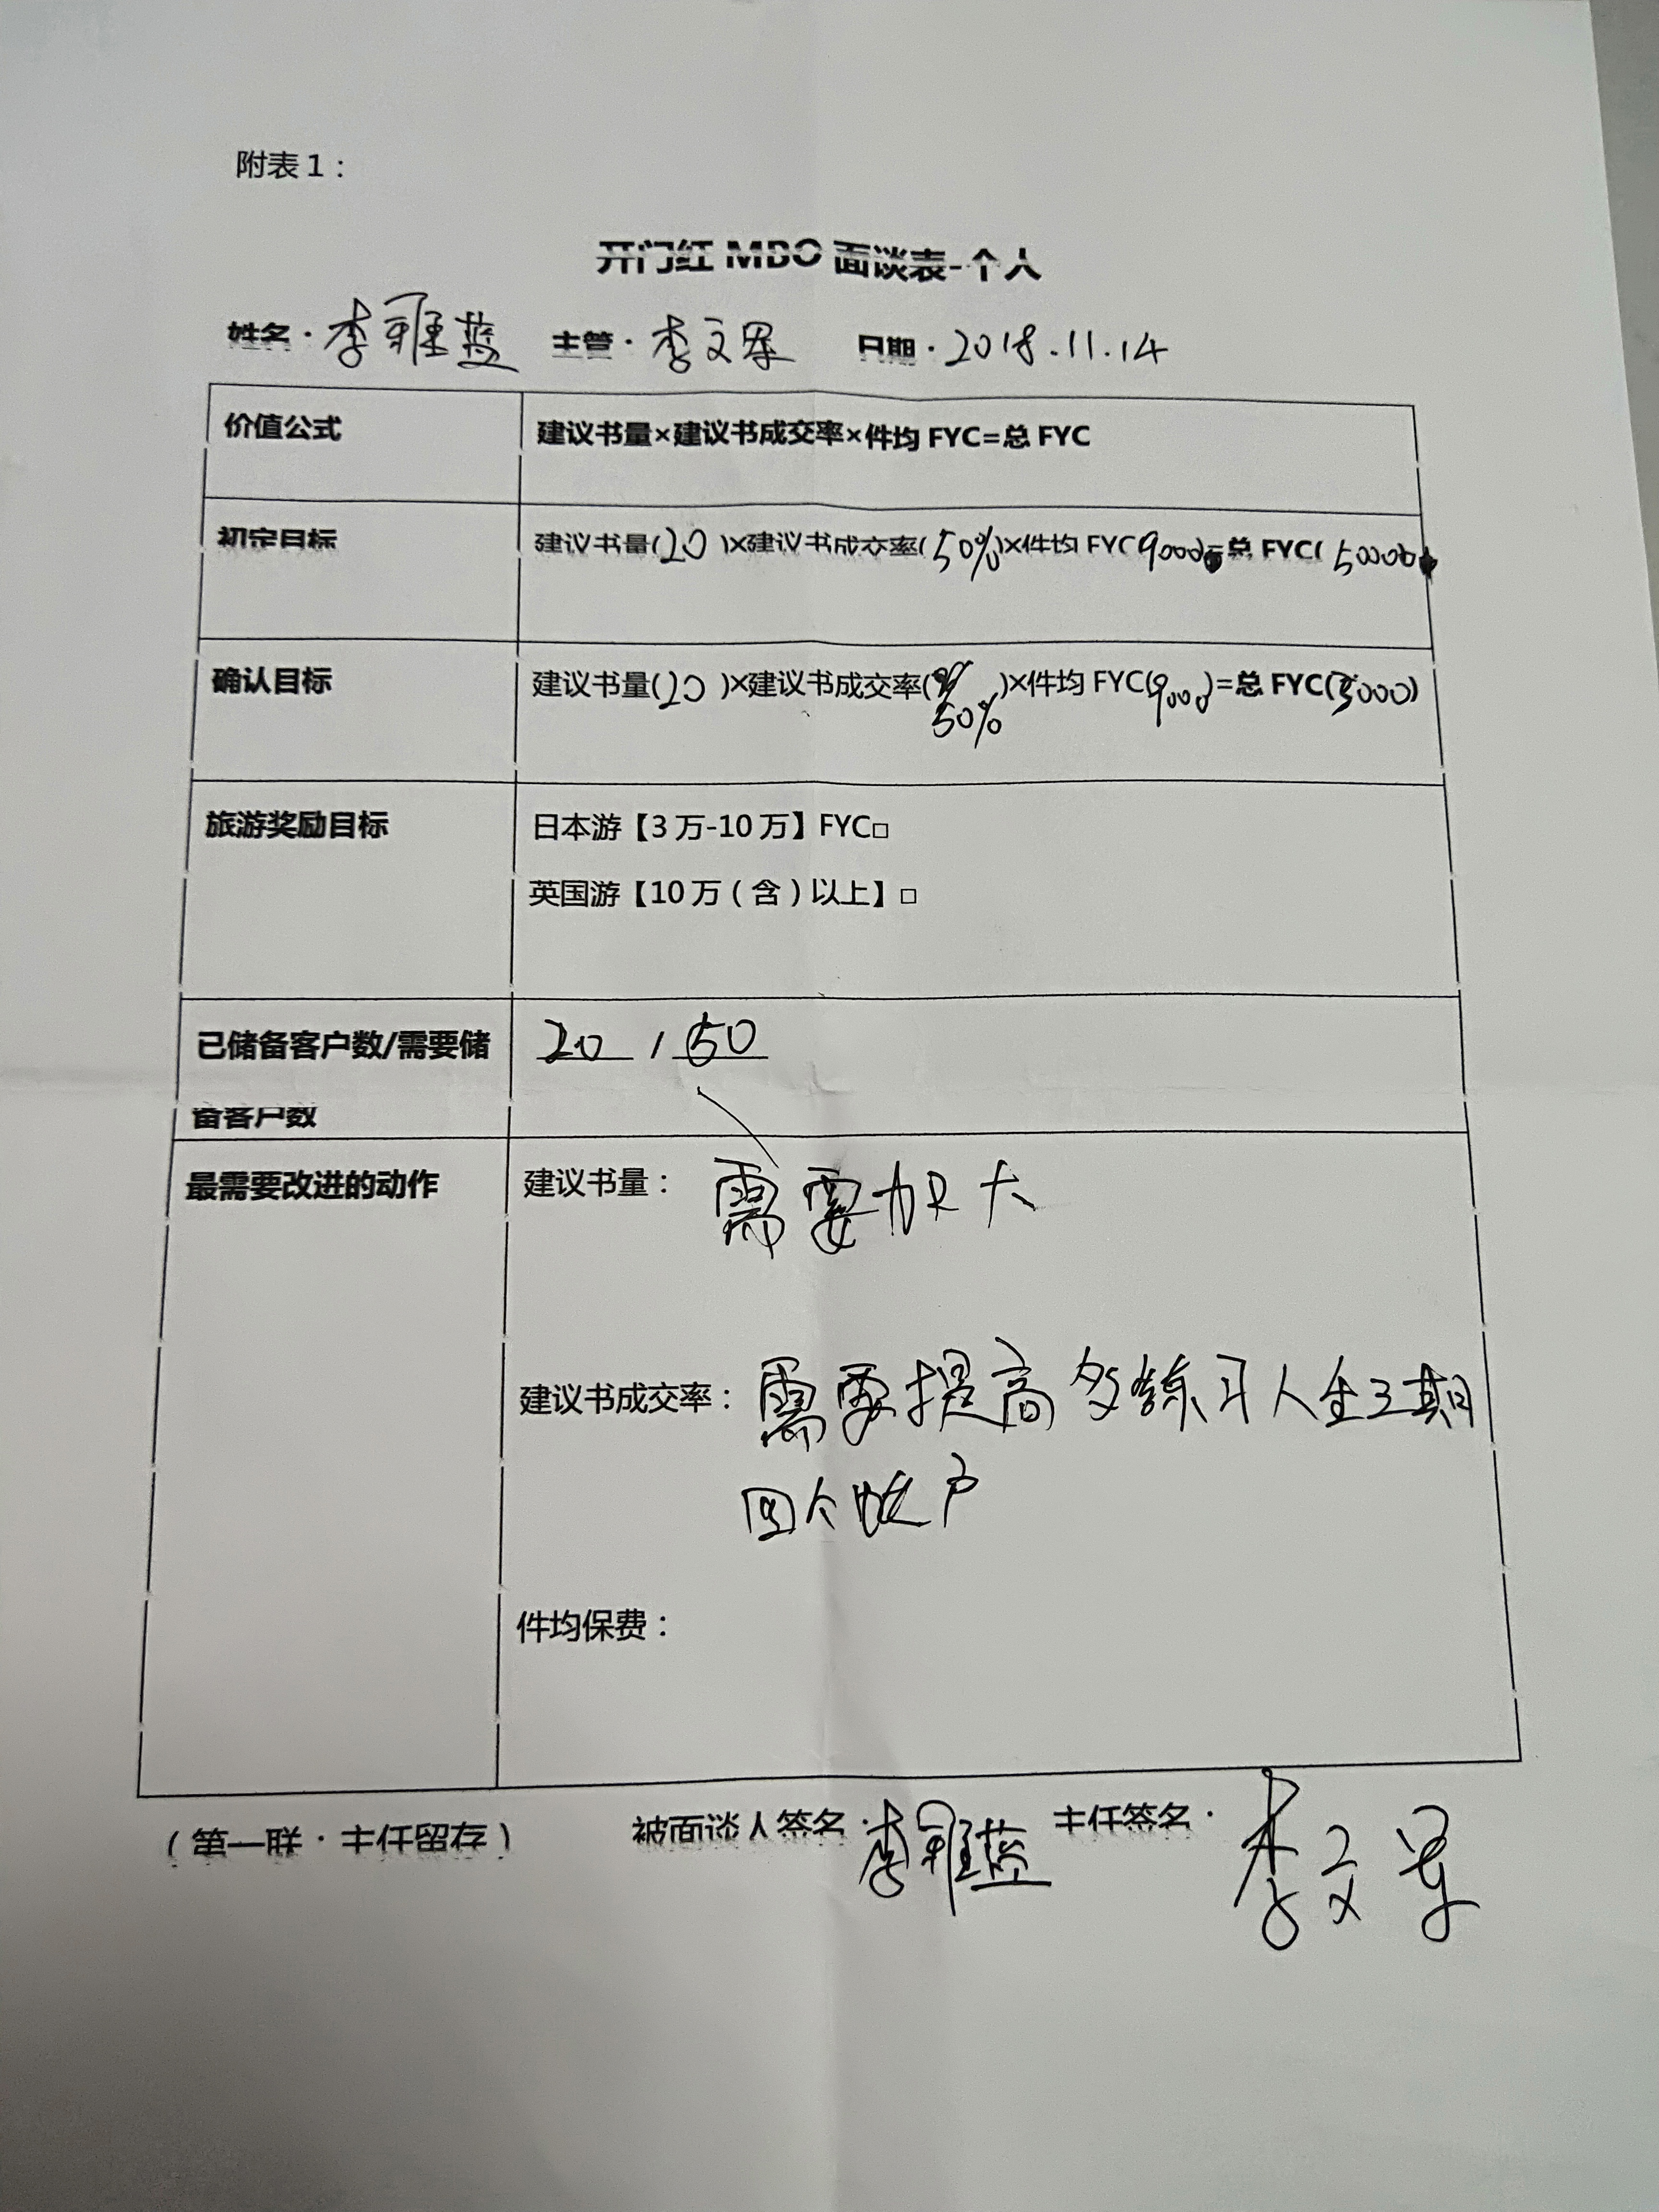 附表1：
开门红 MBO 面谈表-个人
姓名：李雅蓝 主管：李文军 日期：2018.11.14
价值公式 建议书量×建议书成交率×件均 FYC=总 FYC
初定目标 建议书量(20)×建议书成交率(50%)×件均 FYC(9000)=总 FYC(50000)
确认目标 建议书量(20)×建议书成交率(50%)×件均 FYC(9000)=总 FYC(5000)
旅游奖励目标 日本游【3万-10万】FYC□
英国游【10万（含）以上】□
已储备客户数/需要储 20 / 50
备客户数
最需要改进的动作 建议书量：需要加大
建议书成交率：需要提高多练习人生三期
四个账户
件均保费：
（第一联：主任留存） 被面谈人签名：李雅蓝 主任签名：李文军